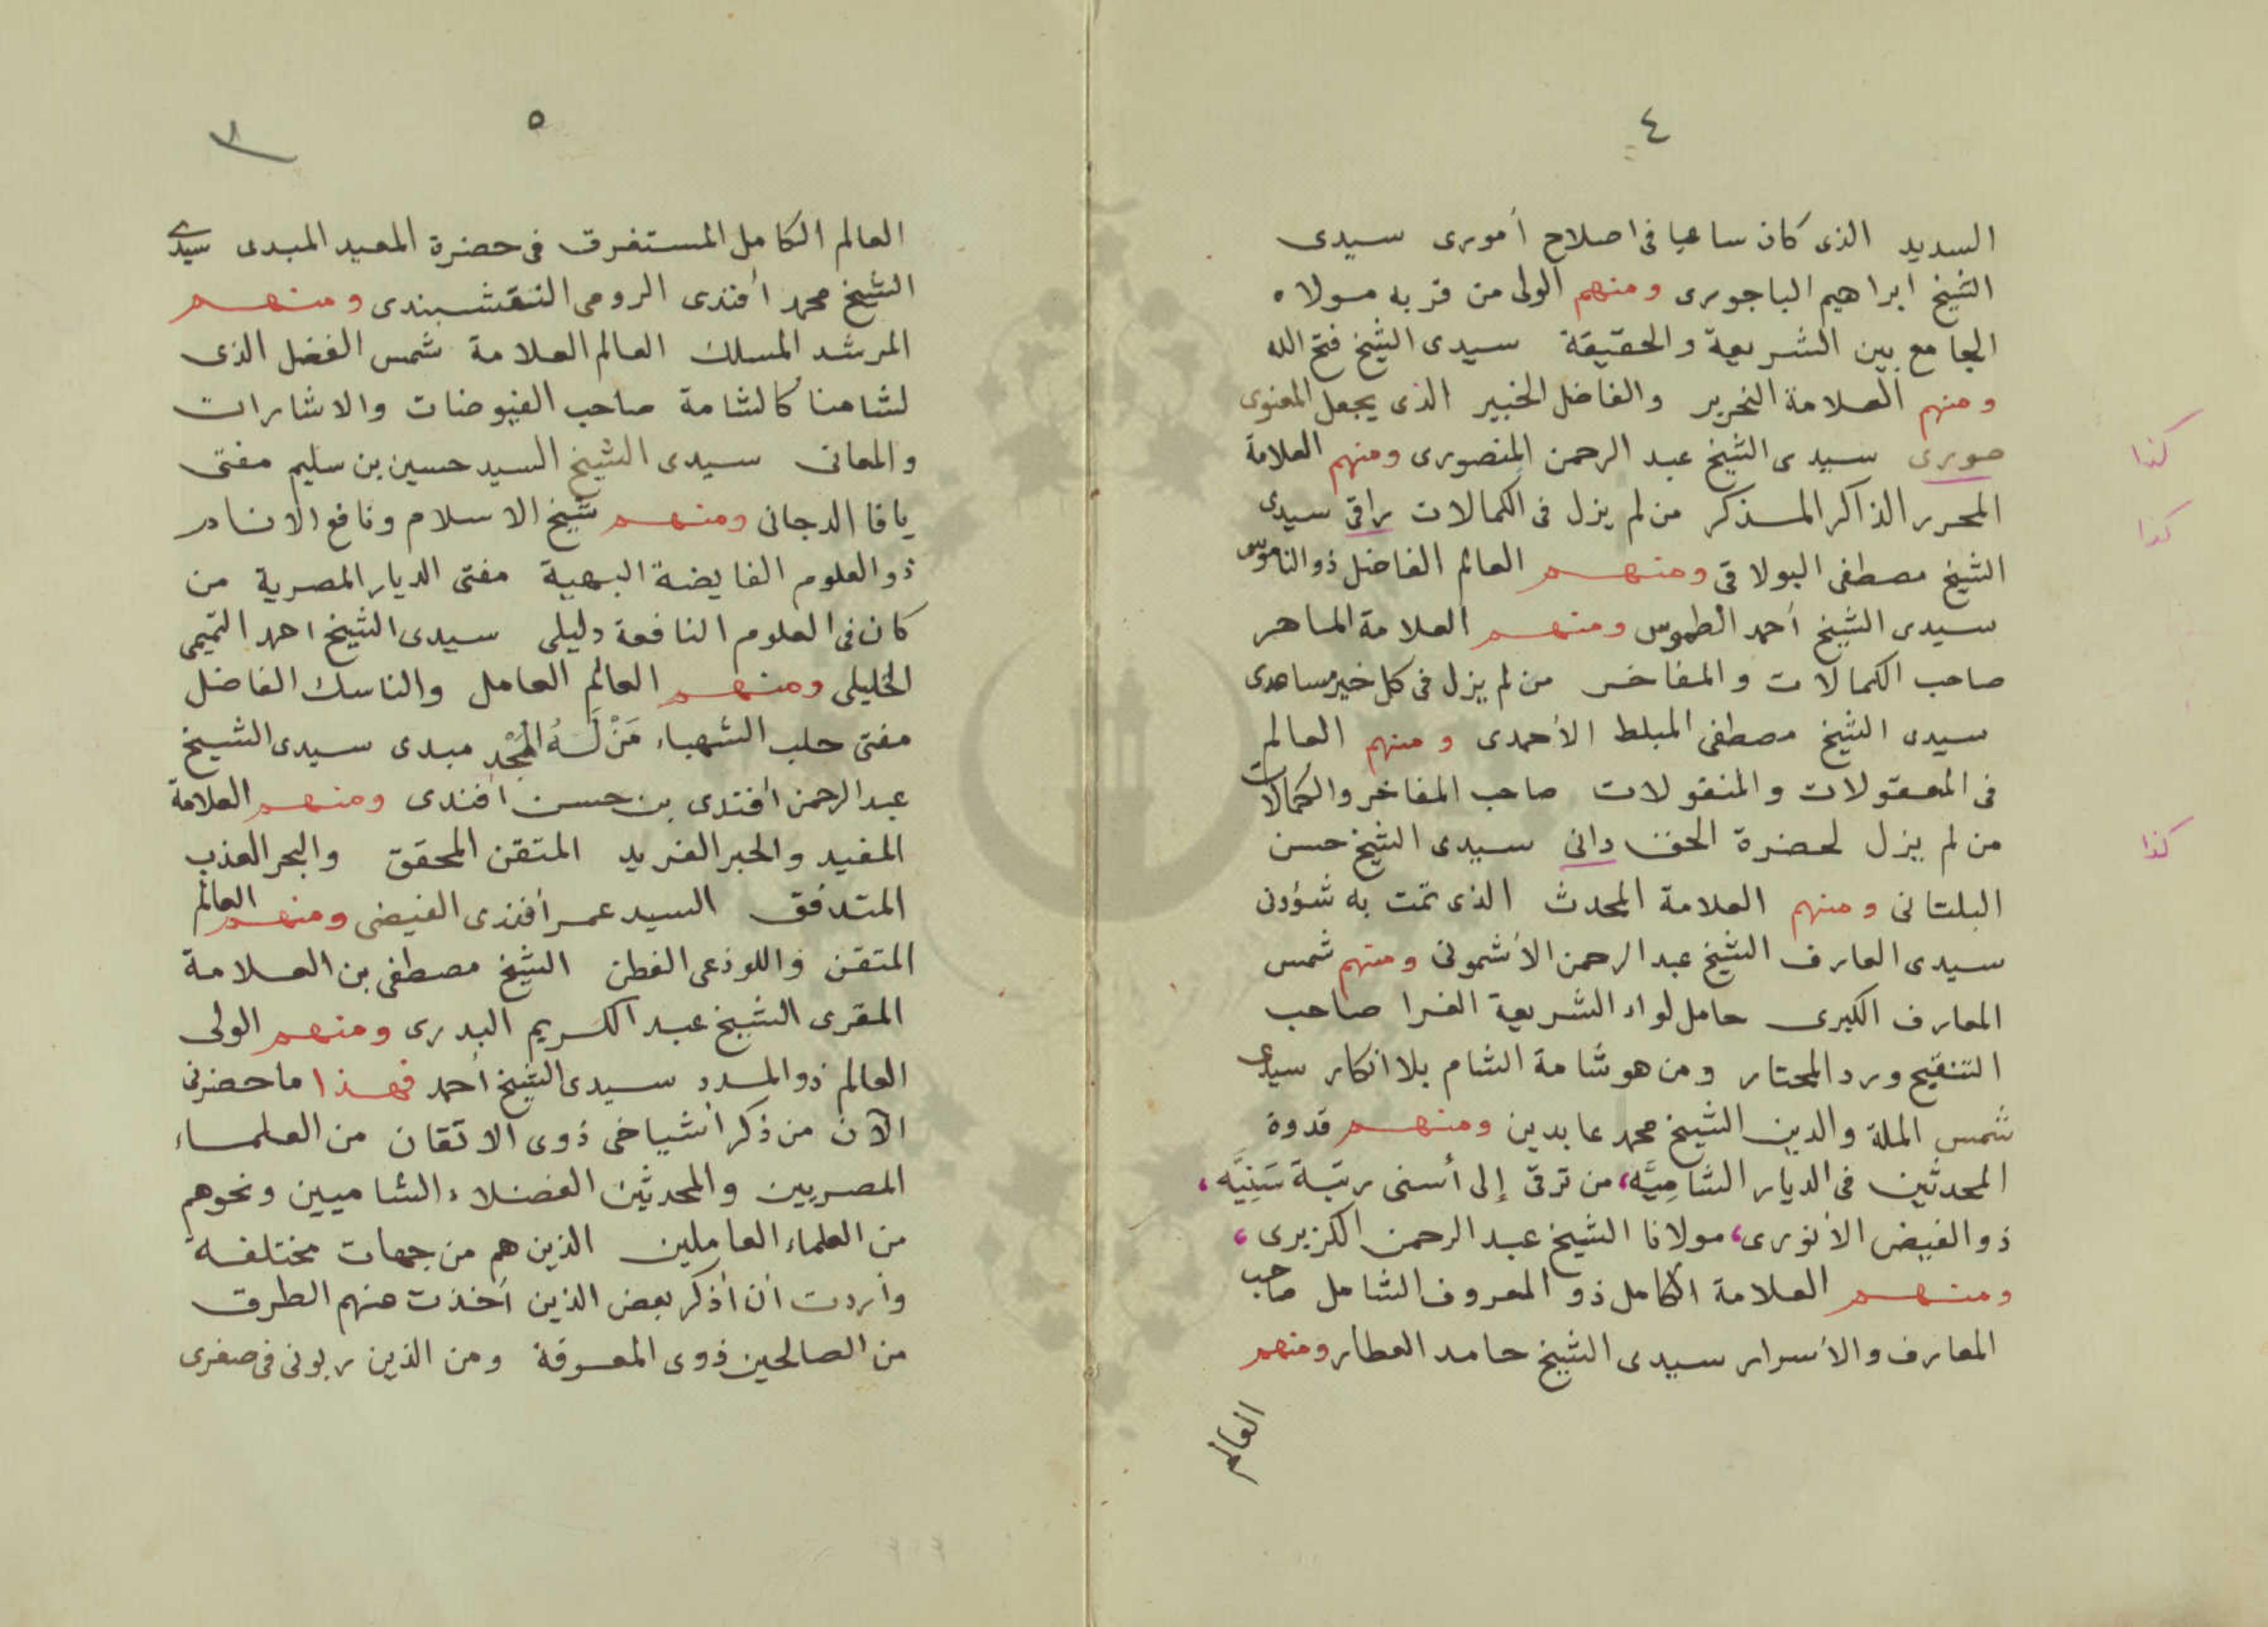 ٤
السديد الذى كان ساعيا فى اصلاح أمورى سيدى
الشيخ ابراهيم الباجورى ومنهم الولى من قربه مولاه
الجامع بين الشريعة والحقيقة سيدى الشيخ فتح الله
ومنهم العلامة النحرير والفاضل الخبير الذى يجعل المعنوى
صورى سيدى الشيخ عبد الرحمن المنصورى ومنهم العلامة
كذا
المحرر الذاكر المذكر من لم يزل فى الكمالات راقى سيدى
كذا
الشيخ مصطفى البولاقى ومنهم العالم الفاضل ذو الناموس
سيدى الشيخ أحمد الطموس ومنهم العلامة الماهر
صاحب الكمالات والمفاخر من لم يزل فى كل خير مساعدى
سيدى الشيخ مصطفى المبلط الأحمدى ومنهم العالم
فى المعقولات والمنقولات صاحب المفاخر والكمالات
من لم يزل لحضرة الحق دانى سيدى الشيخ حسن
كذا
البلتانى ومنهم العلامة المحدث الذى تمت به شؤونى
سيدى العارف الشيخ عبد الرحمن الأشمونى ومنهم شمس
المعارف الكبرى حامل لواء الشريعة الغرا صاحب
التنقيح ورد المحتار ومن هو شامة الشام بلا انكار سيدى
شمس الملة والدين الشيخ محمد عابدين ومنهم قدوة
المحدثين فى الديار الشاميَّه، من ترقى إلى أسنى رتبة سَنِيَّه،
ذو الفيض الأنورى، مولانا الشيخ عبد الرحمن الكزبرى،
ومنهم العلامة الكامل ذو المعروف الشامل صاحب
المعارف والأسرار سيدى الشيخ حامد العطار ومنهم
العالم
٥
٣
العالم الكامل المستغرق فى حضرة المعيد المبدى سيدى
الشيخ محمد أفندى الرومى النقشبندى ومنهم
المرشد المسلك العالم العلامة شمس الفضل الذى
لشامنا كالشامة صاحب الفيوضات والاشارات
والمعانى سيدى الشيخ السيد حسين بن سليم مفتى
يافا الدجانى ومنهم شيخ الاسلام ونافع الانام
ذو العلوم الفايضة البهية مفتى الديار المصرية من
كان فى العلوم النافعة دليلى سيدى الشيخ احمد التميمى
الخليلى ومنهم العالم العامل والناسك الفاضل
مفتى حلب الشهباء مَنْ لَهُ المَجْد مبدى سيدى الشيخ
عبد الرحمن أفندى بن حسن أفندى ومنهم العلامة
المفيد والحبر الفريد المتقن المحقق والبحر العذب
المتدفق السيد عمر أفندى الفيضى ومنهم العالم
المتقن واللوذعى الفطن الشيخ مصطفى بن العلامة
المقرى الشيخ عبد الكريم البدرى ومنهم الولى
العالم ذو المدد سيدى الشيخ أحمد فهذا ما حضرنى
الآن من ذكر أشياخى ذوى الاتقان من العلماء
المصريين والمحدثين الفضلاء الشاميين ونحوهم
من العلماء العاملين الذين هم من جهات مختلفة
وأردت أن أذكر بعض الذين أخذت منهم الطرق
من الصالحين ذوى المعرفة ومن الذين ربونى فى صغرى